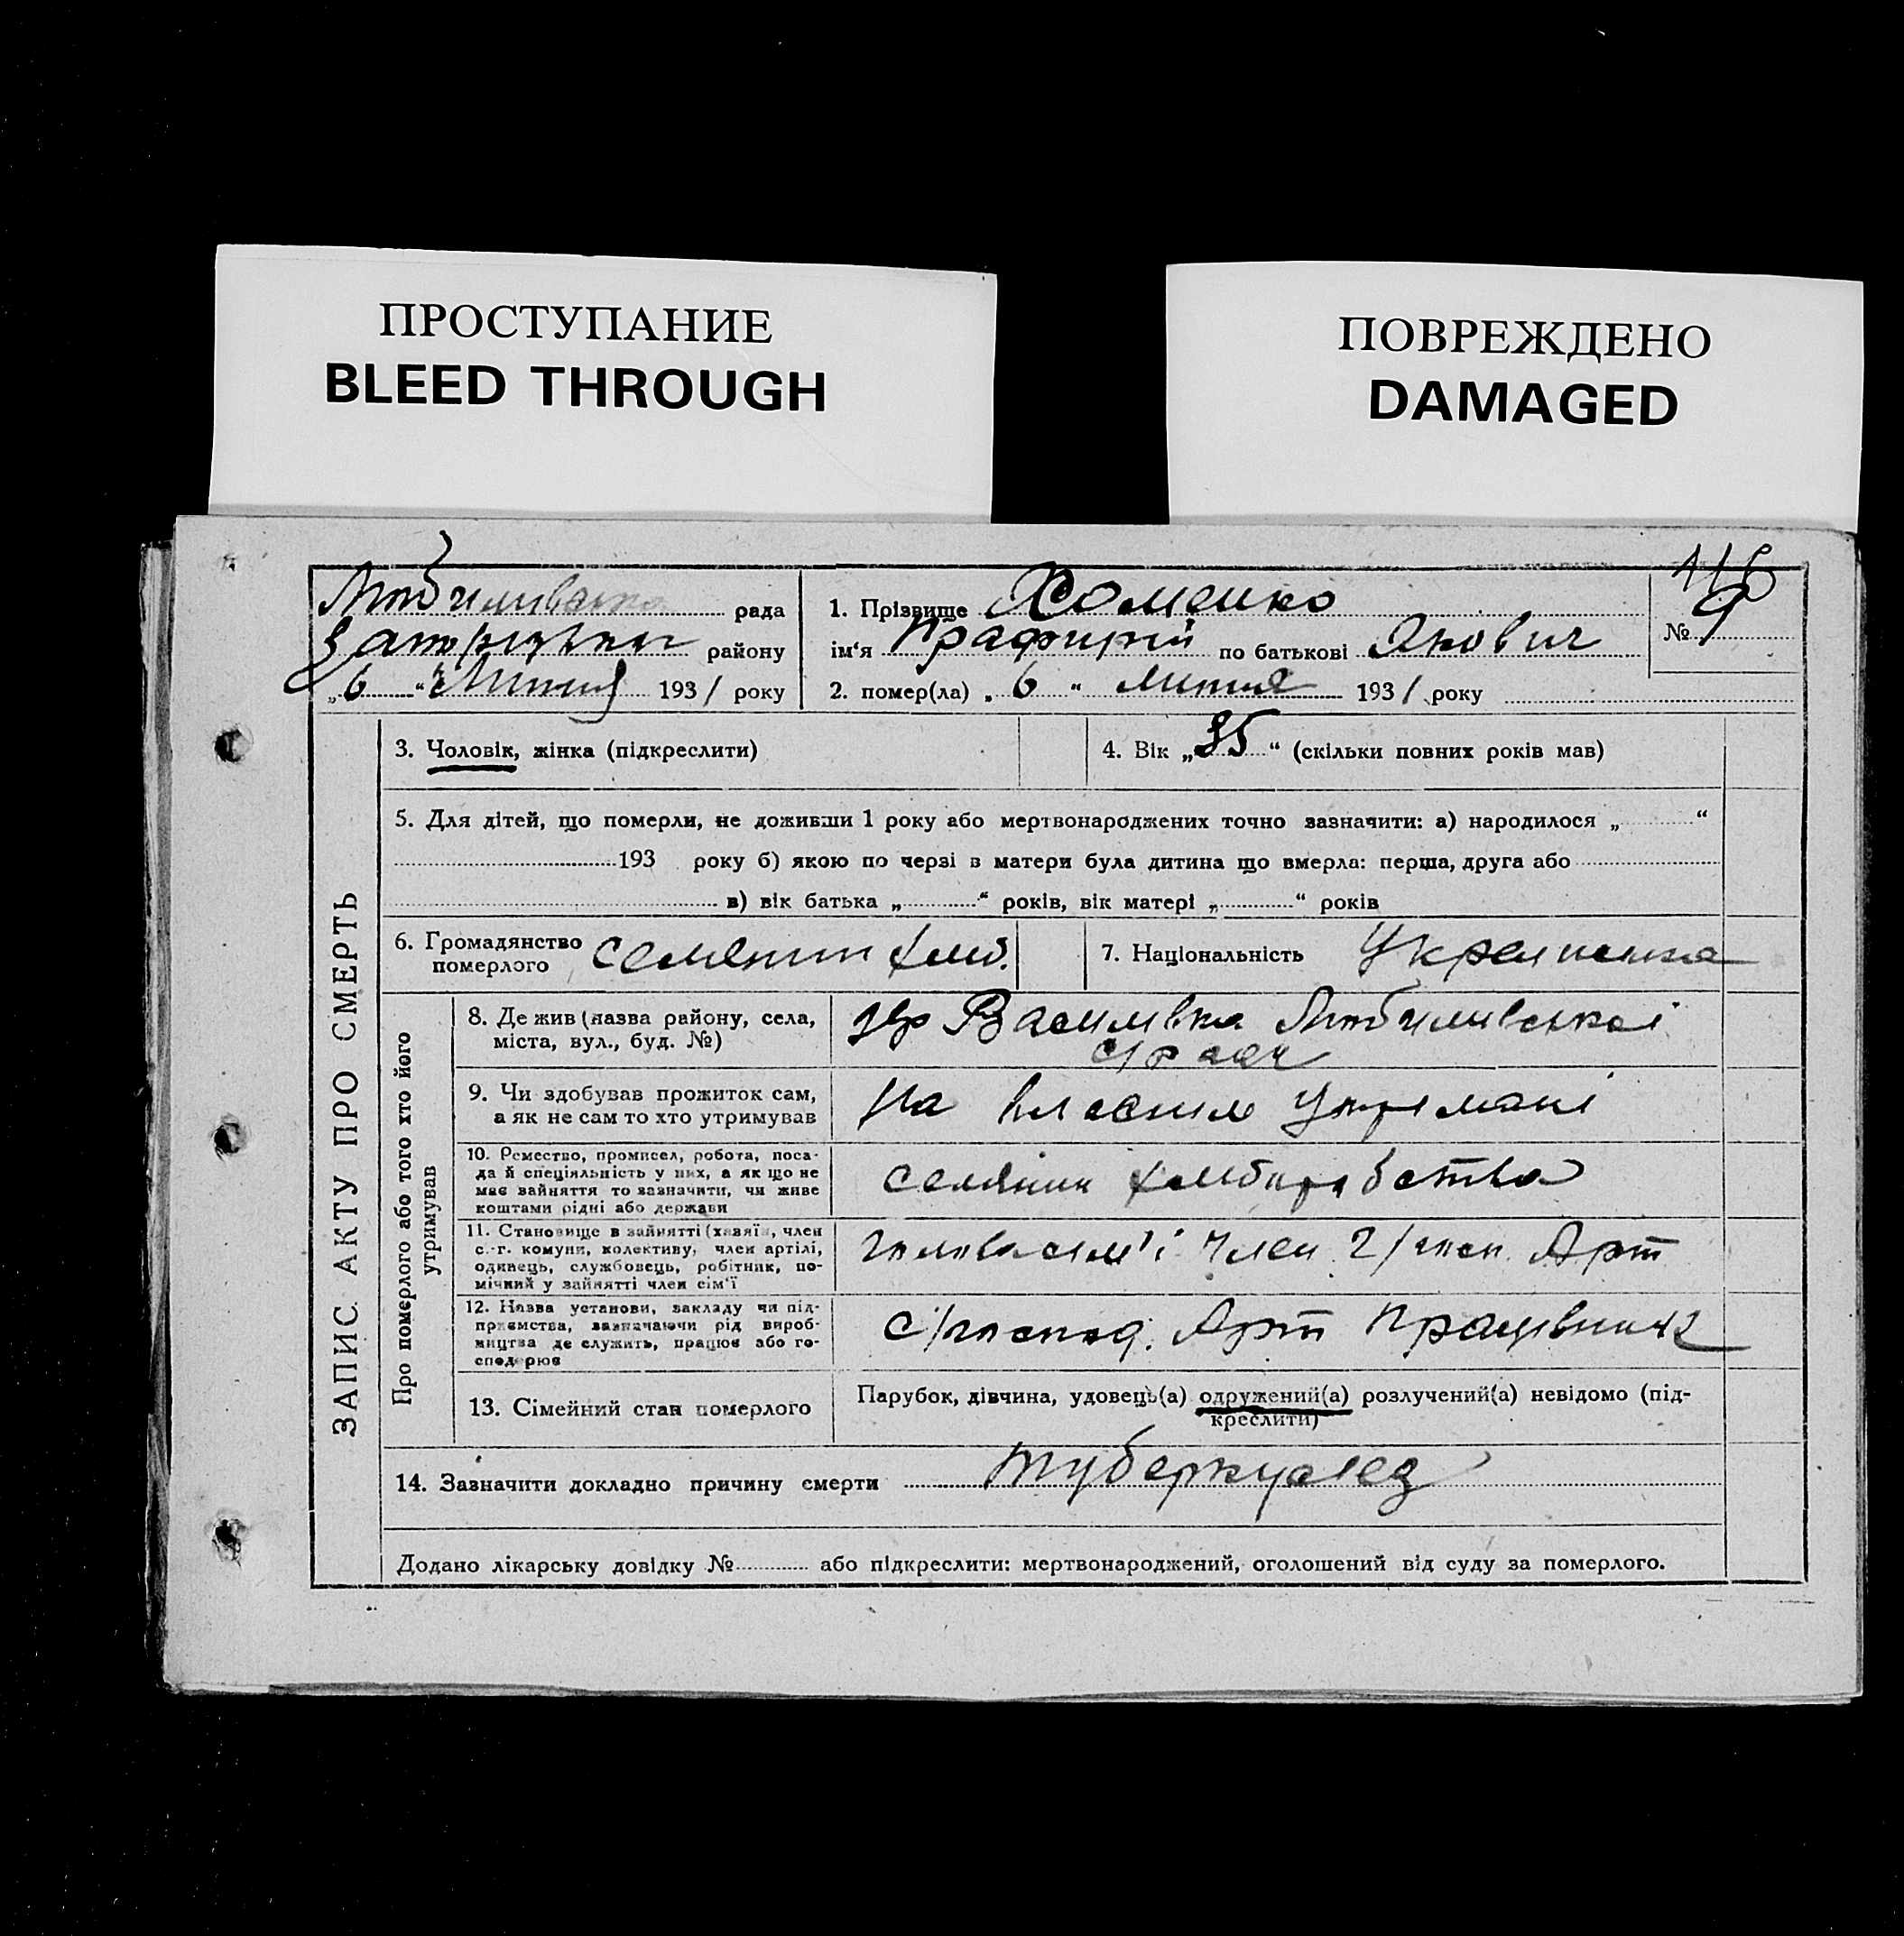 ПРОСТУПАНИЕ
BLEED THROUGH
ПОВРЕЖДЕНО
DAMAGED
рада
району
„6“ Липня 1931 року
1. Прізвище Хоменко
ім'я по батькові Якович
№ 9
2. помер(ла) „6“ Липня 1931 року
ЗАПИС АКТУ ПРО СМЕРТЬ
3. Чоловік, жінка (підкреслити)
4. Вік „35“ (скільки повних років мав)
5. Для дітей, що померли, не доживши 1 року або мертвонароджених точно зазначити: а) народилося „ “
193 року б) якою по черзі в матери була дитина що вмерла: перша, друга або
в) вік батька „ “ років, вік матері „ “ років
6. Громадянство
померлого селянин хліб.
7. Національність Українська
Про померлого або того хто його
утримував
8. Де жив (назва району, села,
міста, вул., буд. №)
хут Василівка
с/ради
9. Чи здобував прожиток сам,
а як не сам то хто утримував
На власнім утримані
10. Ремество, промисел, робота, поса-
да й спеціяльність у них, а як що не
має зайняття то зазначити, чи живе
коштами рідні або держави
селянин хліборобство
11. Становище в зайнятті (хазяїн, член
с.-г. комуни, колективу, член артілі,
одинець, службовець, робітник, по-
мічний у зайнятті член сім'ї
голова сім'ї член Арт
12. Назва установи, закладу чи під-
приємства, зазначаючи рід вироб-
ництва де служить, працює або го-
сподарює
с/господ. Арт Працівник
13. Сімейний стан померлого
Парубок, дівчина, удовець(а) одружений(а) розлучений(а) невідомо (під-
креслити)
14. Зазначити докладно причину смерти туберкульоз
Додано лікарську довідку № або підкреслити: мертвонароджений, оголошений від суду за померлого.